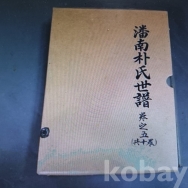 潘南朴氏世譜
卷之五
(共十卷)
kobay